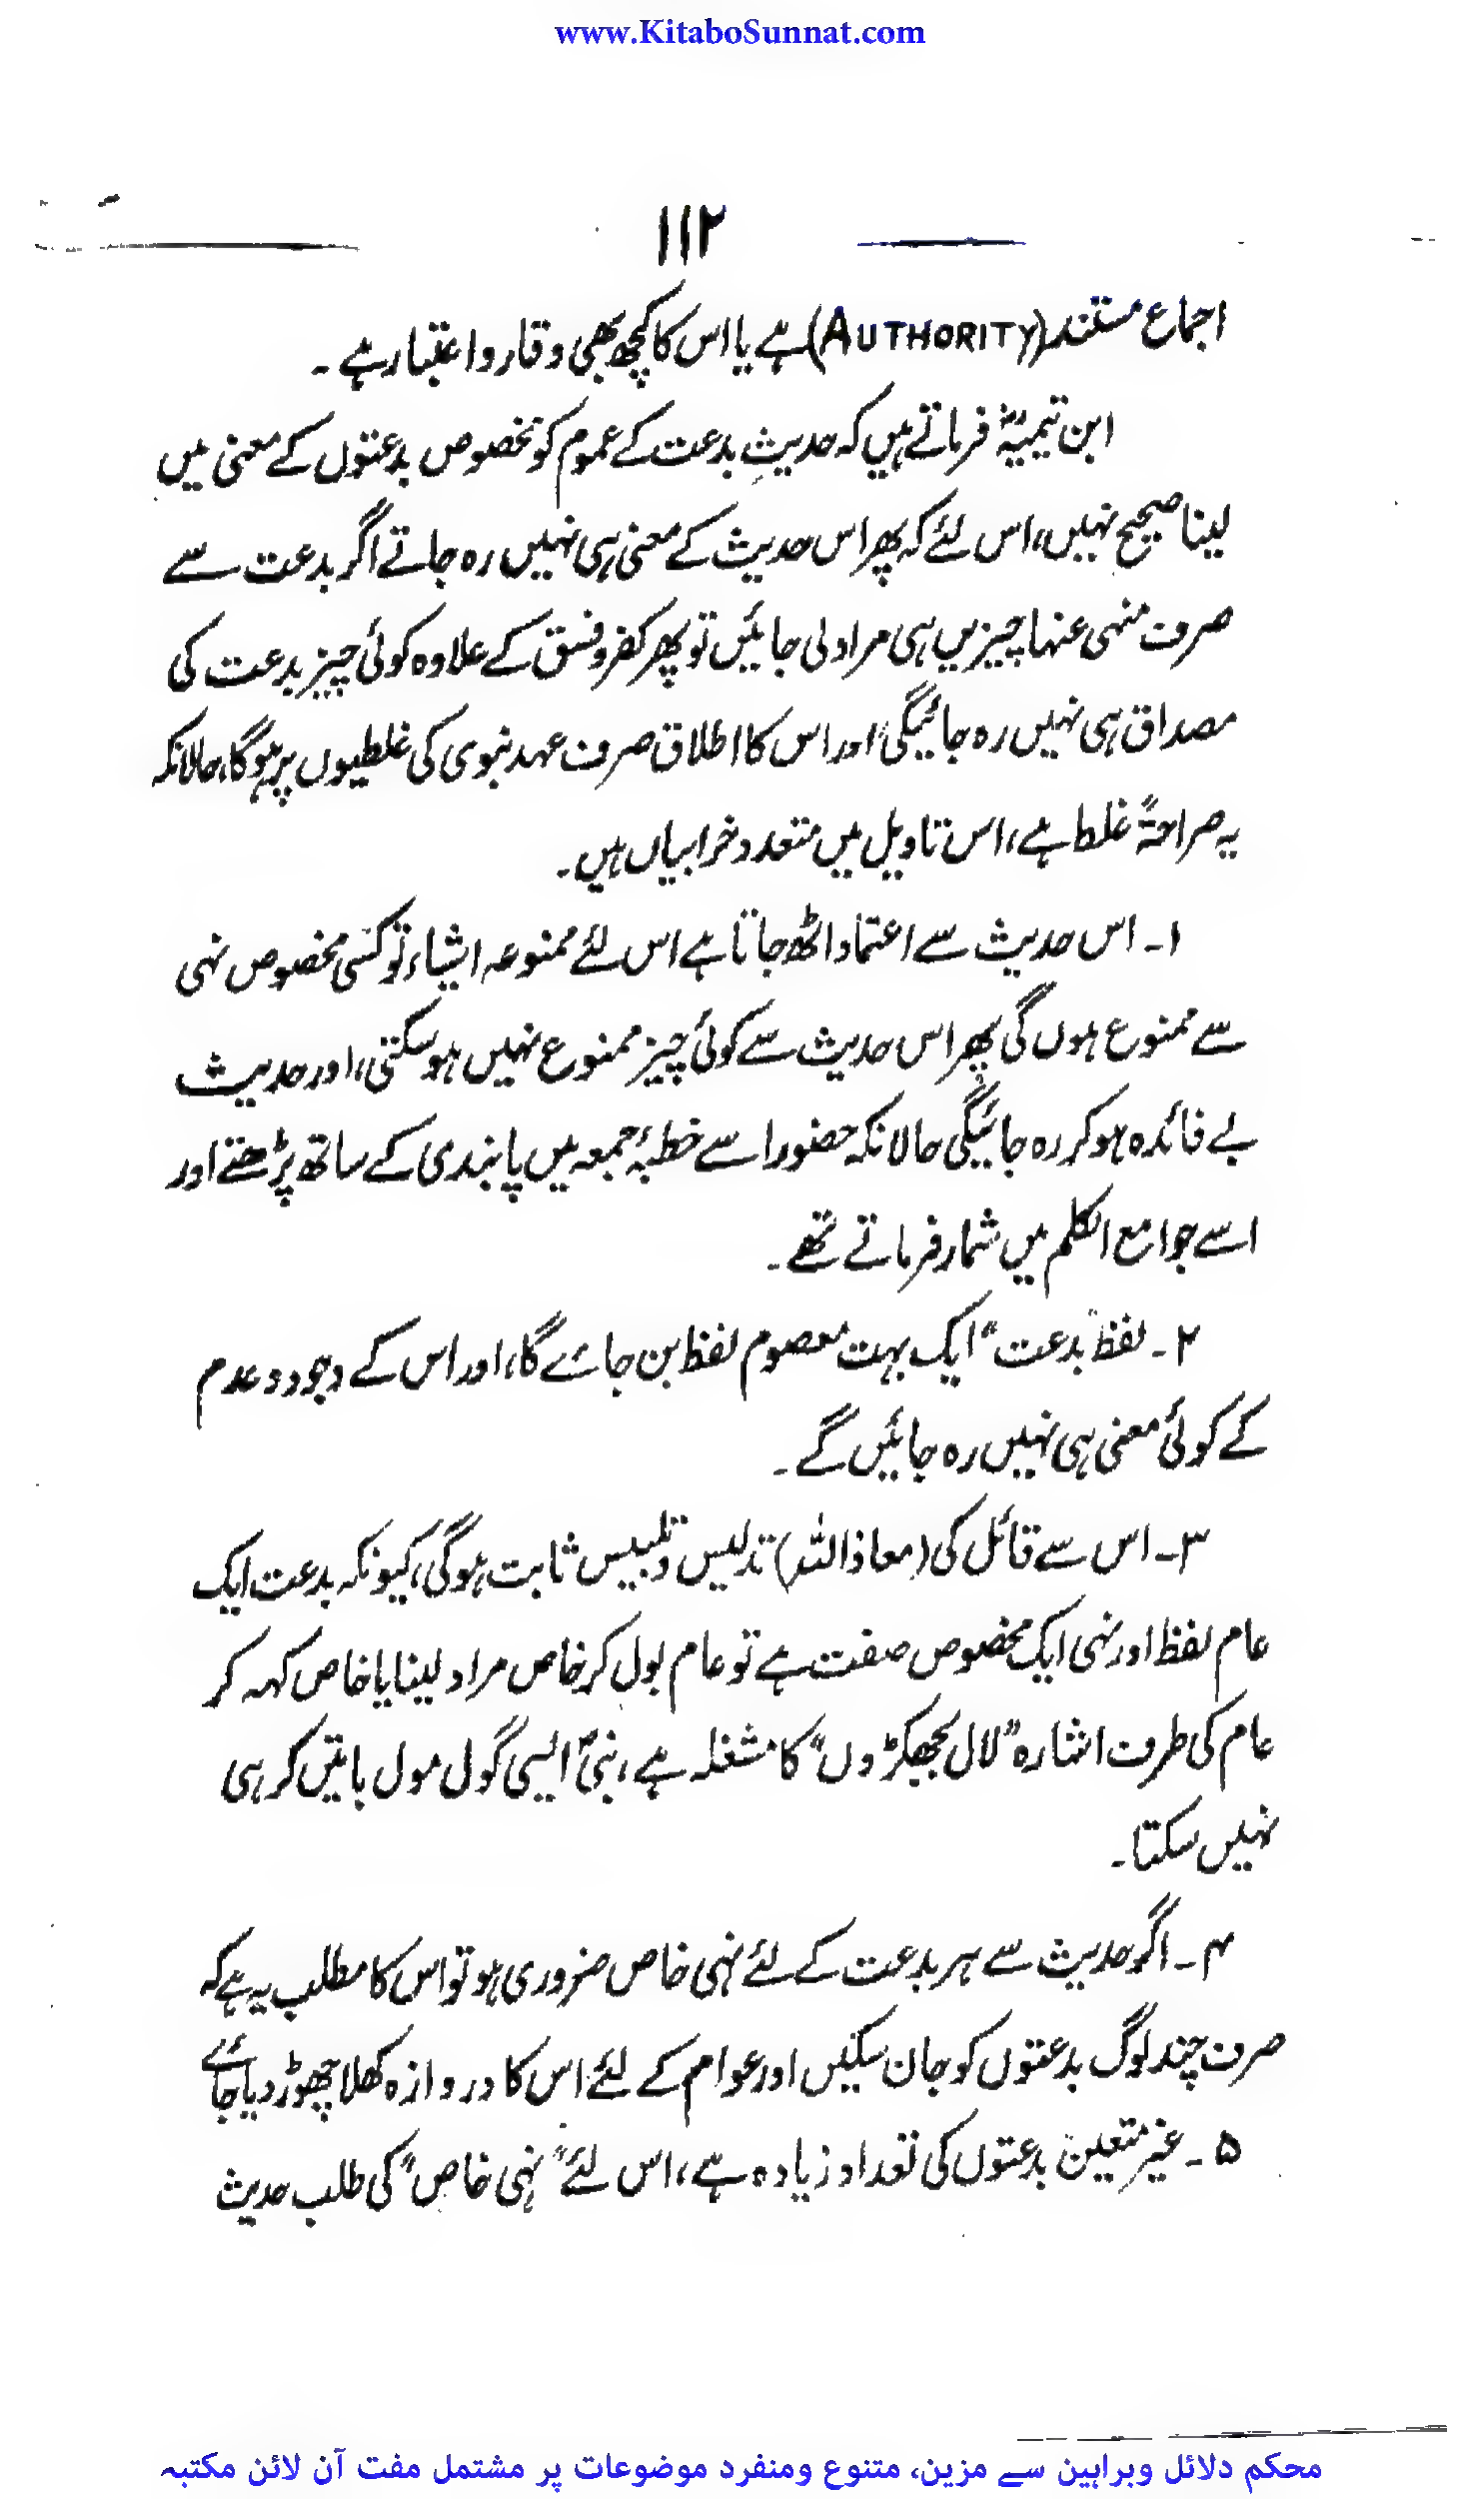 www.KitaboSunnat.com
۱۱۲
اجماع مستند (AUTHORITY) ہے یا اس کا کچھ بھی وقار و اعتبار ہے۔
ابن تیمیہؒ فرماتے ہیں کہ حدیثِ بدعت کے عموم کو مخصوص بدعتوں کے معنی میں
لینا صحیح نہیں، اس لئے کہ پھر اس حدیث کے معنی ہی نہیں رہ جاتے اگر بدعت سے
صرف منہی عنہا چیزیں ہی مراد لی جائیں تو پھر کفر و فسق کے علاوہ کوئی چیز بدعت کی
مصداق ہی نہیں رہ جائیگی اور اس کا اطلاق صرف عہد نبوی کی غلطیوں پر ہوگا، حالانکہ
یہ صراحۃً غلط ہے، اس تاویل میں متعدد خرابیاں ہیں۔
۱۔ اس حدیث سے اعتماد اٹھ جاتا ہے اس لئے ممنوعہ اشیاء تو کسی مخصوص نہی
سے ممنوع ہوں گی پھر اس حدیث سے کوئی چیز ممنوع نہیں ہو سکتی، اور حدیث
بے فائدہ ہو کر رہ جائیگی حالانکہ حضور اسے خطبۂ جمعہ میں پابندی کے ساتھ پڑھتے اور
اسے جوامع الکلم میں شمار فرماتے تھے۔
۲۔ لفظ "بدعت" ایک بہت معصوم لفظ بن جائے گا، اور اس کے وجود و عدم
کے کوئی معنی ہی نہیں رہ جائیں گے۔
۳۔ اس سے قائل کی (معاذ اللہ) تدلیس و تلبیس ثابت ہوگی، کیونکہ بدعت ایک
عام لفظ اور نہی ایک مخصوص صفت ہے تو عام بول کر خاص مراد لینا یا خاص کہہ کر
عام کی طرف اشارہ "لال بجھکڑوں" کا مشغلہ ہے، نبیؐ ایسی گول مول باتیں کر ہی
نہیں سکتا۔
۴۔ اگر حدیث سے ہر بدعت کے لئے نہی خاص ضروری ہو تو اس کا مطلب یہ ہے کہ
صرف چند لوگ بدعتوں کو جان سکیں اور عوام کے لئے اس کا دروازہ کھلا چھوڑ دیا جائے
۵۔ غیر متعین بدعتوں کی تعداد زیادہ ہے، اس لئے "نہی خاص" کی طلب حدیث
محکم دلائل وبراہین سے مزین، متنوع ومنفرد موضوعات پر مشتمل مفت آن لائن مکتبہ